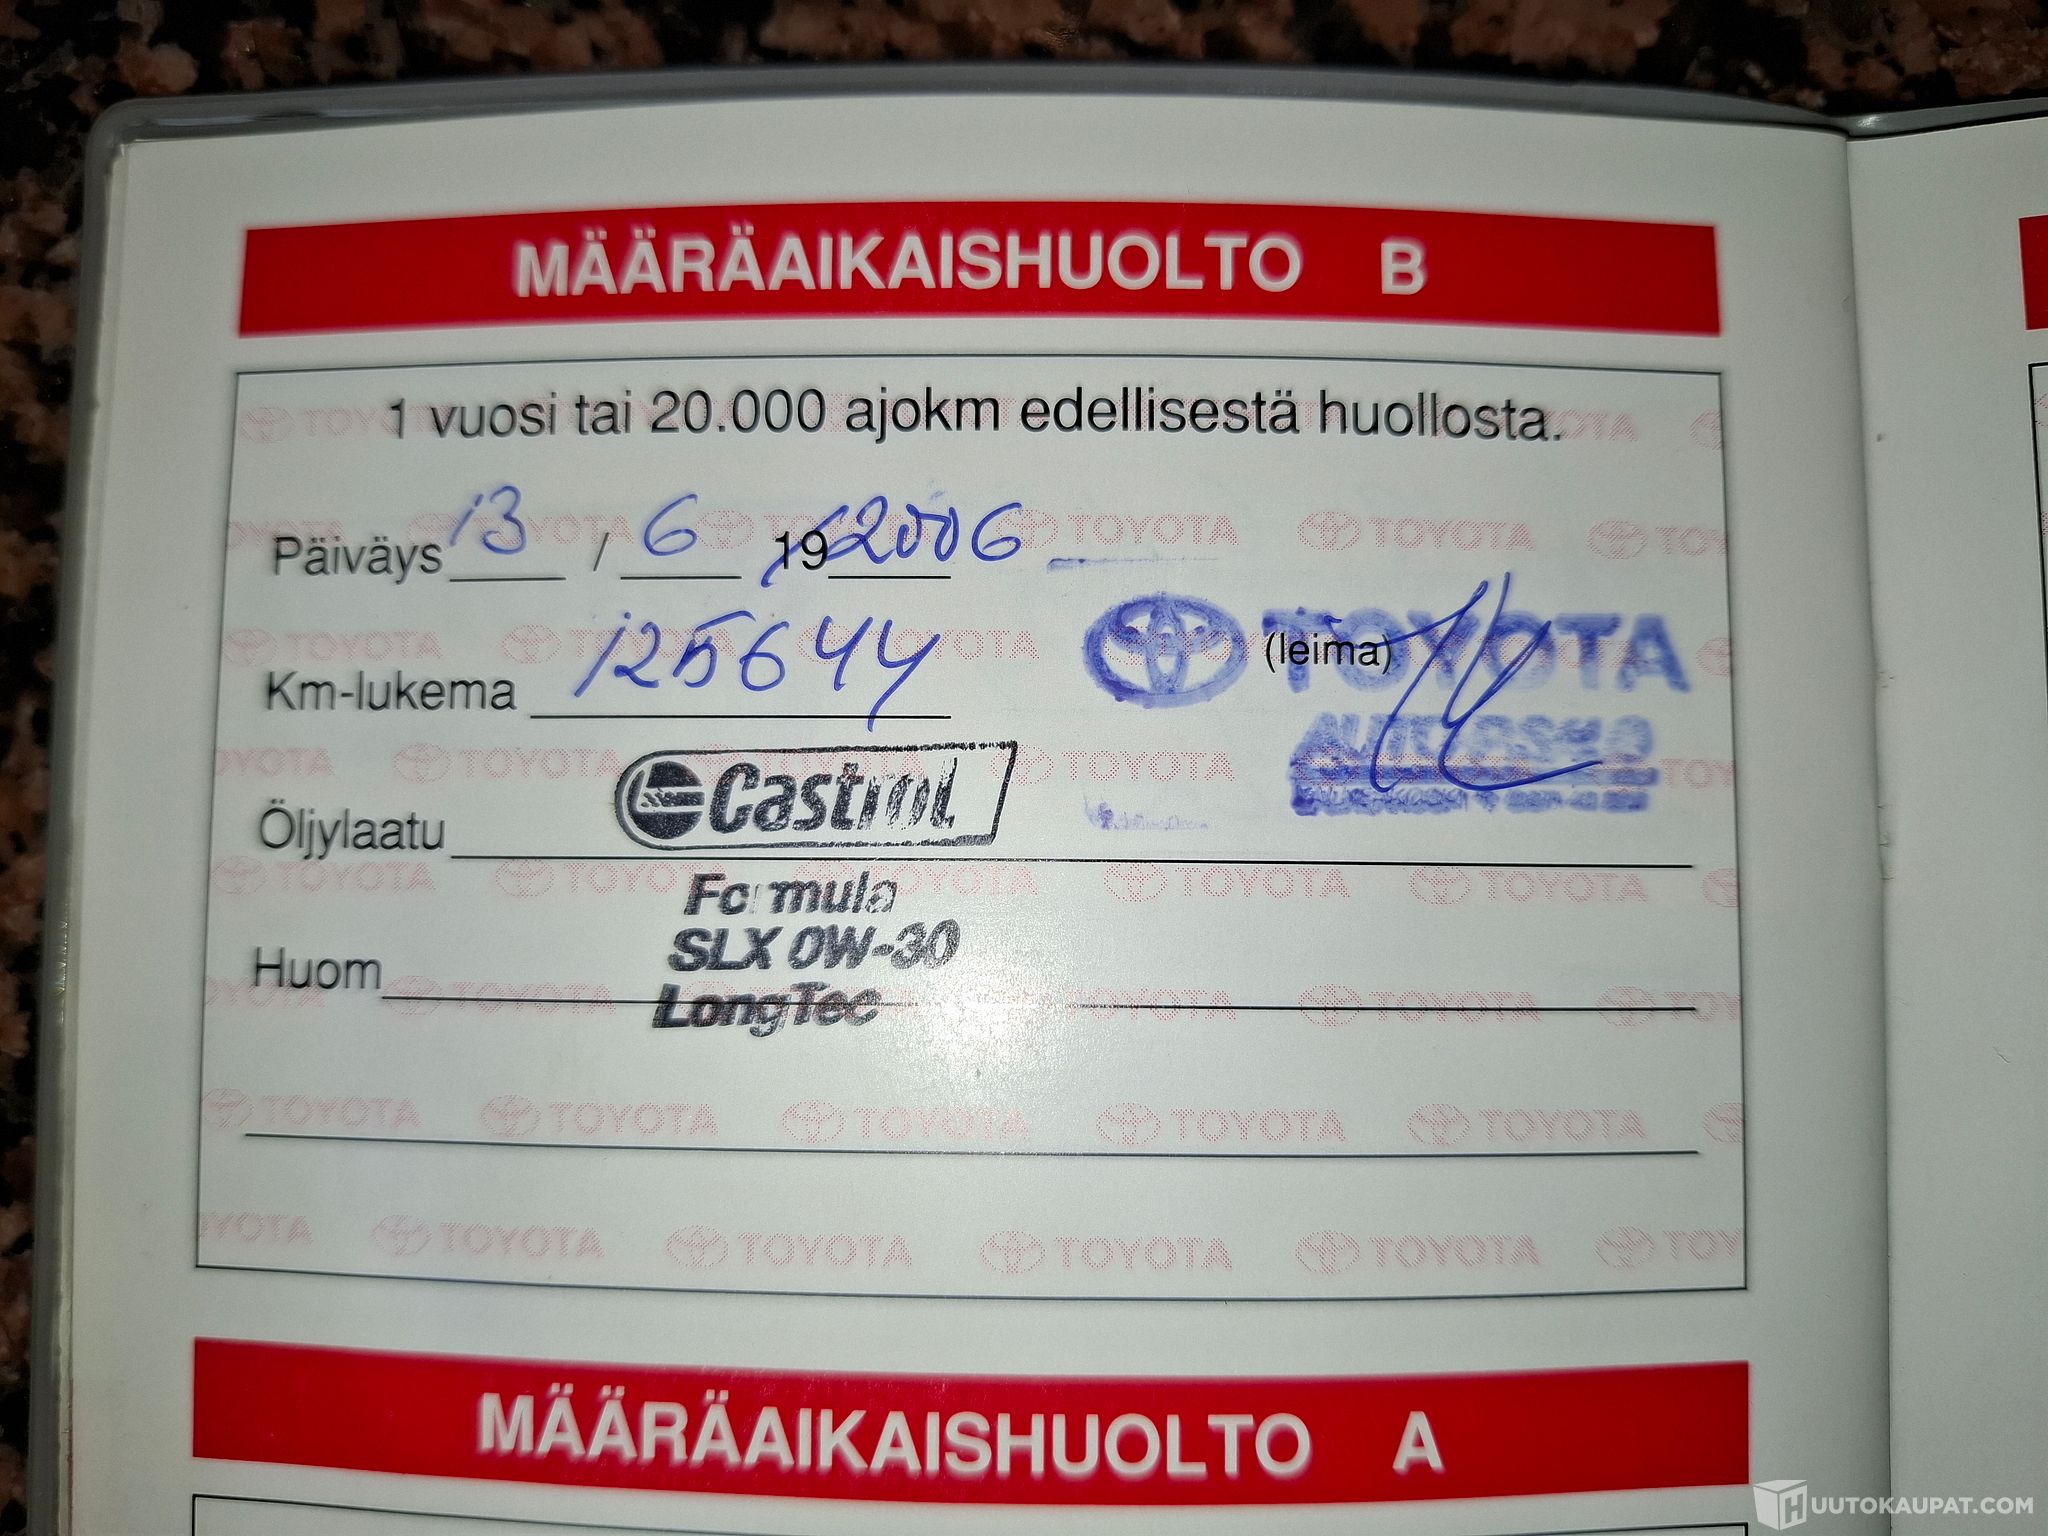 MÄÄRÄAIKAISHUOLTO B
1 vuosi tai 20.000 ajokm edellisestä huollosta.
Päiväys 13 / 6 19 2006
Km-lukema 125644
(leima)
TOYOTA
Öljylaatu Castrol
Formula
SLX 0W-30
Huom
LongTec
MÄÄRÄAIKAISHUOLTO A
HUUTOKAUPAT.COM